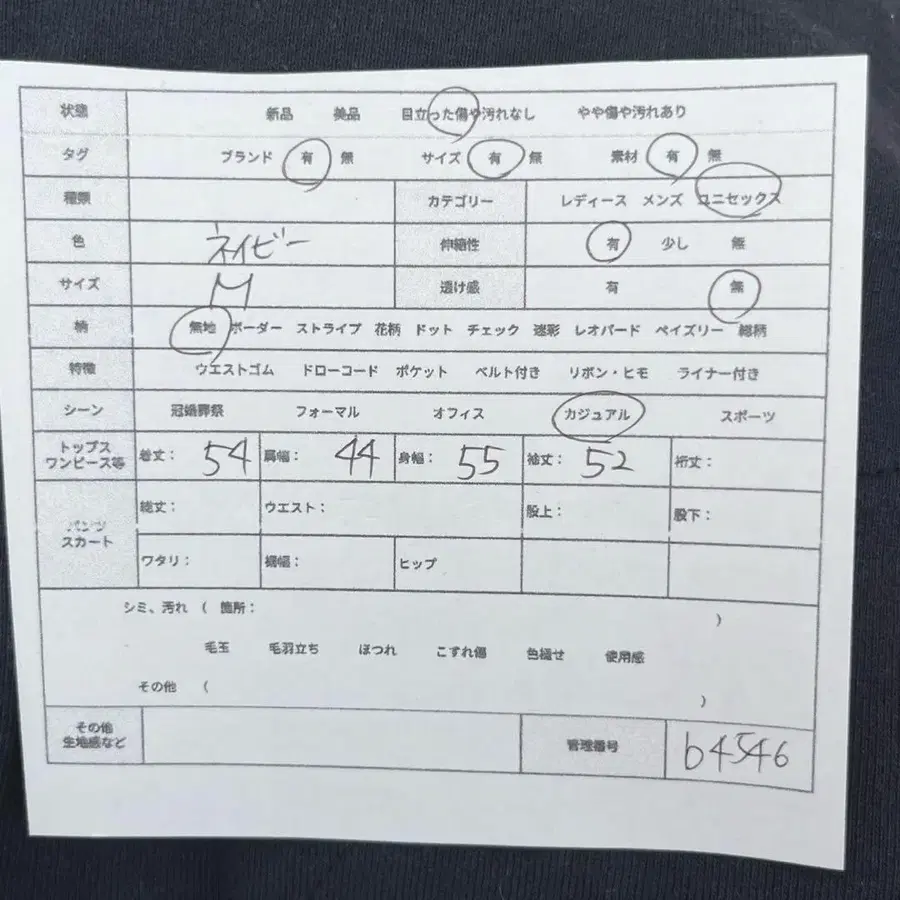 状態 新品 美品 目立った傷や汚れなし やや傷や汚れあり
タグ ブランド 有 無 サイズ 有 無 素材 有 無
種類 カテゴリー レディース メンズ ユニセックス
色 ネイビー 伸縮性 有 少し 無
サイズ M 透け感 有 無
柄 無地 ボーダー ストライプ 花柄 ドット チェック 迷彩 レオパード ペイズリー 総柄
特徴 ウエストゴム ドローコード ポケット ベルト付き リボン・ヒモ ライナー付き
シーン 冠婚葬祭 フォーマル オフィス カジュアル スポーツ
トップス
ワンピース等 着丈： 54 肩幅： 44 身幅： 55 袖丈： 52 裄丈：
パンツ
スカート 総丈： ウエスト： 股上： 股下：
ワタリ： 裾幅： ヒップ
シミ、汚れ （ 箇所： ）
毛玉 毛羽立ち ほつれ こすれ傷 色褪せ 使用感
その他 （ ）
その他
生地感など 管理番号 b4546